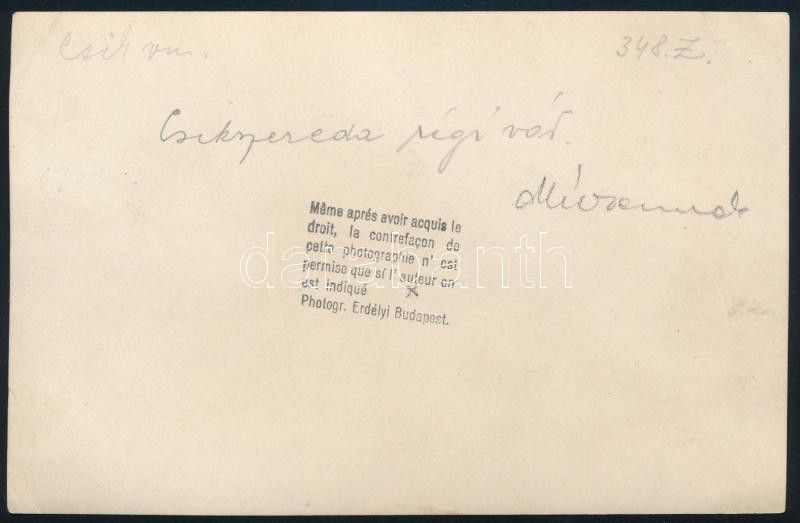 Csik vm.
348.Z.
Csikszereda régi vár.
Même aprés avoir acquis le
droit, la contrefaçon de
cette photographie n' est
permise que si l' auteur en
est indiqué
Photogr. Erdélyi Budapest.
darabanth